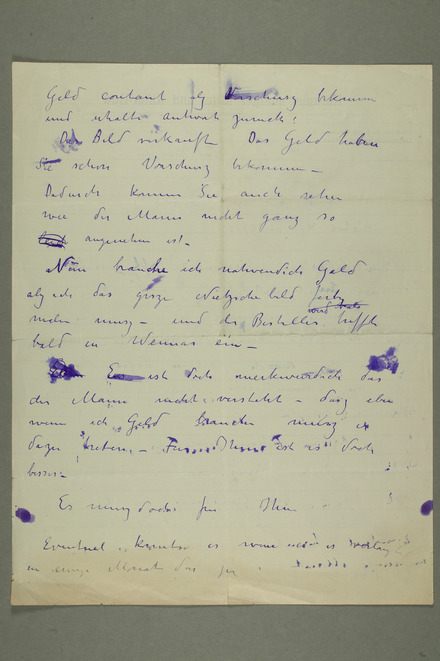 Geld contant als Vorschusz bekomm
und erhalte antwort zurück!
Das Bild verkauft Das Geld haben
Sie schon Vorschusz bekommen –
Dadurch können Sie auch sehen
wie der Mann nicht ganz so
angenehm ist –
Nun brauche ich natwendich Geld
als ich das grosze Nietzsche bild fertig
malen musz – und der Besteller trifft
bald in Weimar ein –
Es ist doch merkwürdich das
der Mann nicht versteht – dasz eben
wenn ich Geld brauche musz er
dazu treten – Für Ihm ist es doch
besser –
Es musz doch für Ihm
Eventuel könnte es wenn es
in einige Monate das